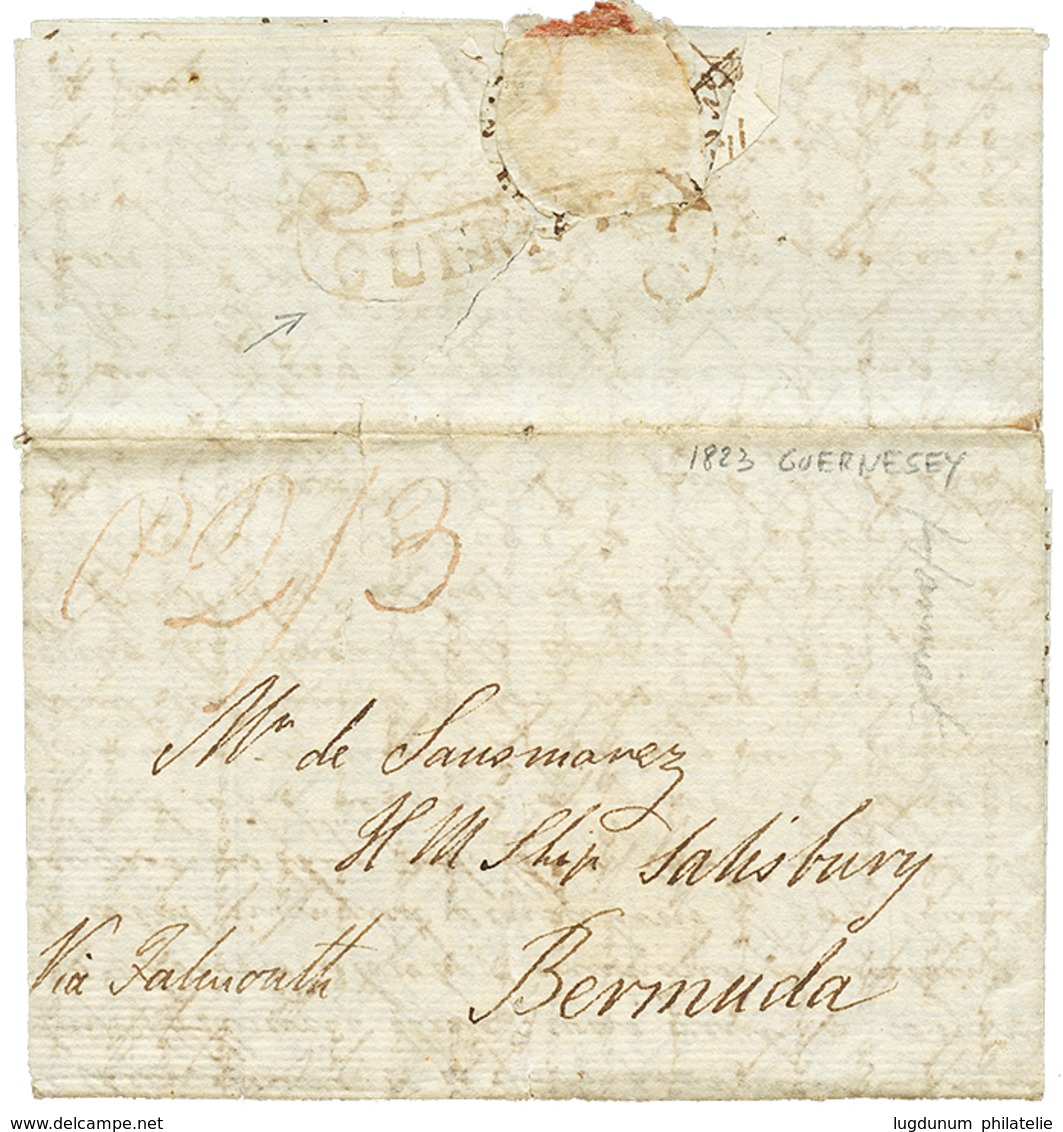 1823 GUERNESEY
PD/3
Mr. de Sausmarez
H M Ship Salisbury
Via Falmouth
Bermuda
www.delcampe.net
lugdunum philatelie